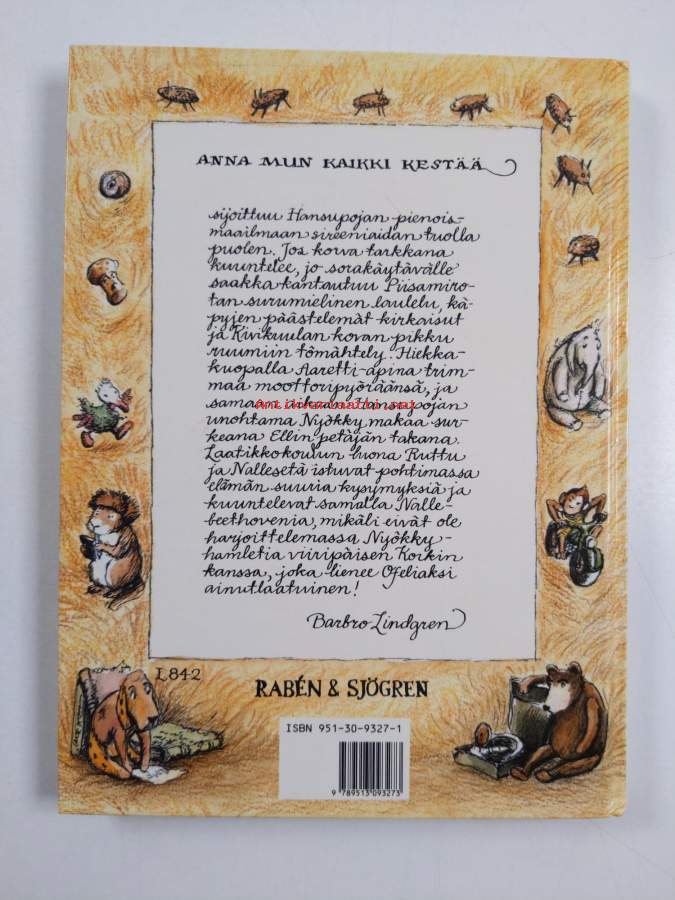 ANNA MUN KAIKKI KESTÄÄ
sijoittuu Hansupojan pienois-
maailmaan sireeniaidan tuolla
puolen. Jos korva tarkkana
kuuntelee, jo sorakäytävälle
saakka kantautuu Piisamiro-
tan surumielinen laulelu, kä-
pyjen päästelemät kirkaisut
ja Kivikuulan kovan pikku
ruumiin tömähtely. Hiekka-
kuopalla Aaretti-apina trim-
maa moottoripyöräänsä, ja
samaan aikaan Hansupojan
unohtama Nyökky makaa sur-
keana Ellin petäjän takana.
Laatikkokoulun luona Ruttu
ja Nallesetä istuvat pohtimassa
elämän suuria kysymyksiä ja
kuuntelevat samalla Nalle-
beethovenia, mikäli eivät ole
harjoittelemassa Nyökky-
hamletia viiripäisen Korkin
kanssa, joka lienee Ofeliaksi
ainutlaatuinen!
Barbro Lindgren
L 84.2
RABÉN & SJÖGREN
ISBN 951-30-9327-1
9 789513 093273